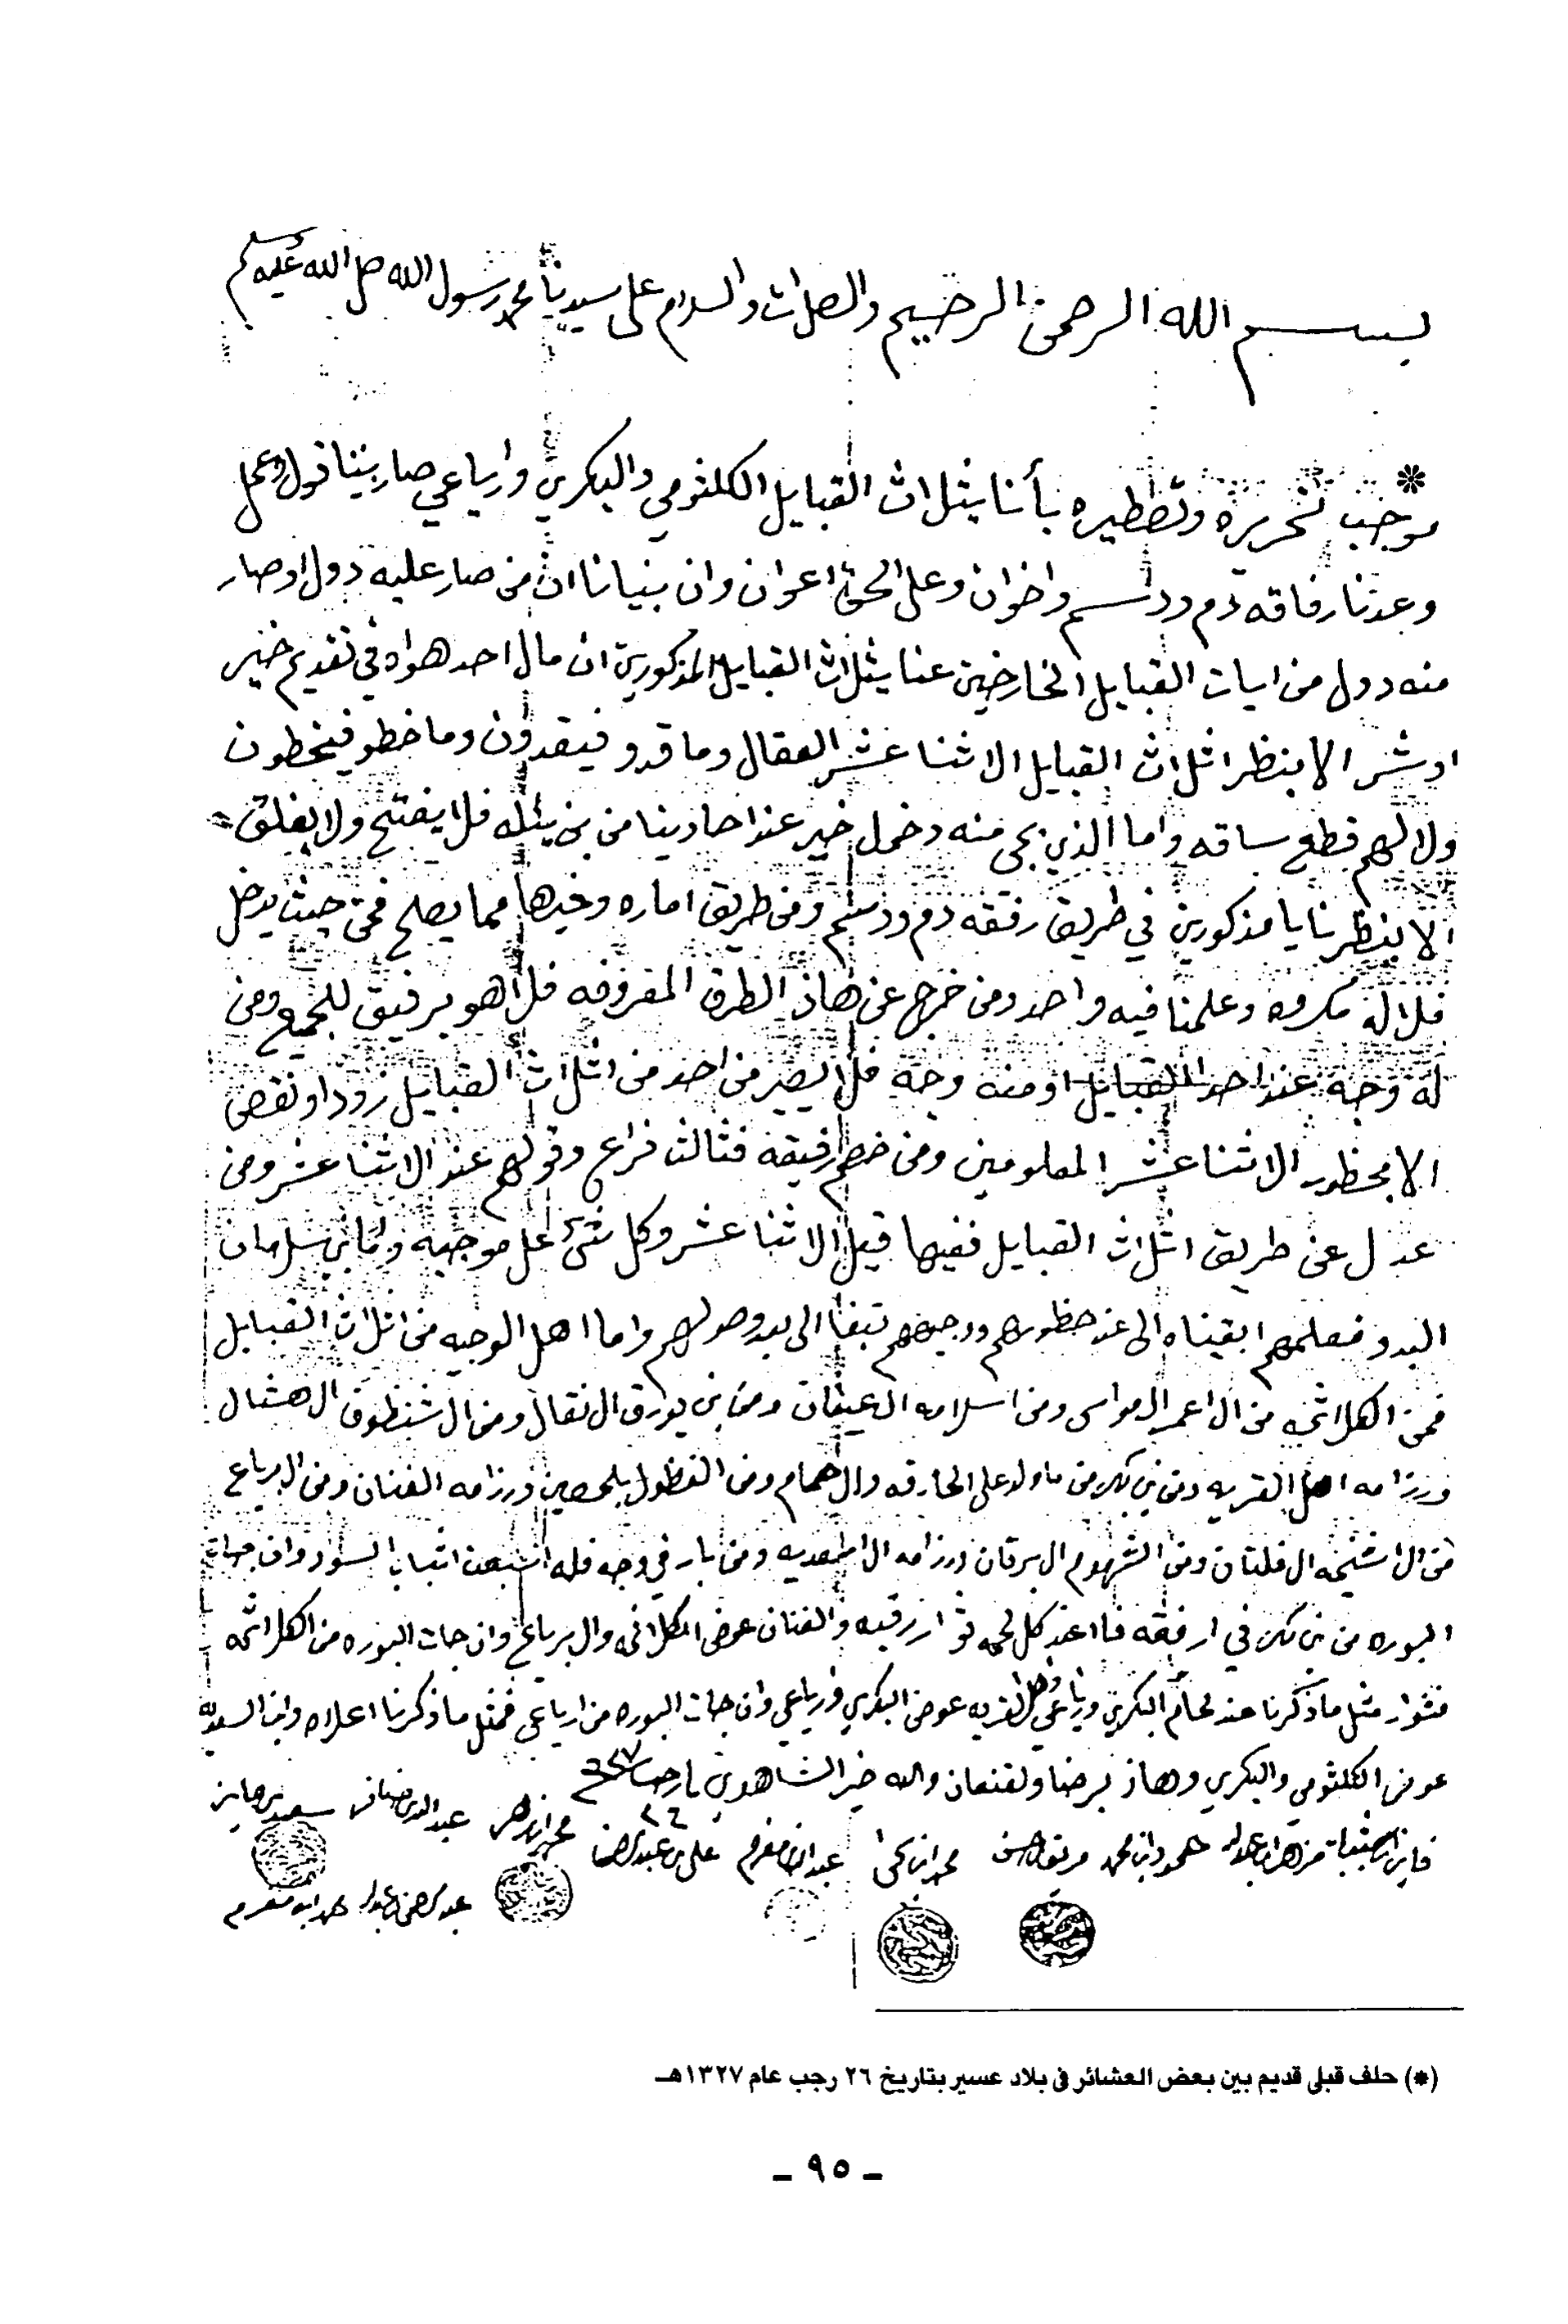 بسم الله الرحمن الرحيم والصلات والسلام على سيدنا محمد رسول الله صلى الله عليه وسلم
*
موجب تحريره وتصطيره بأننا يثلاث القبايل الكلثومي والبكري وارباعي صار بيننا قول وعمل
وعدنا رفاقه دم ودسم واخوان وعلى الحق اعوان وان بنيانا ان من صار عليه دول اوصار
منه دول من ايات القبايل الخارجين عنا يثلاث القبايل المذكورين ان مال احد هواه في تقديم خير
اوشر الا بنظر اثلاث القبايل الاثنا عشر العقال وما قدو فيقدون وما خطو فيخطون
ولا لهم قطع ساقه واما الذي يجي منه دخمل خير عند احاد ينا من بن يثله فلا يفتح ولا يغلق
الا بنظرنا يا مذكورين في طريق رفقه دم ودسم ومن طريق اماره وغيرها مما يصلح فمن حيث يدخل
فلا له مكروه وعلمنا فيه واحد ومن خرج عن هاذ الطرق المعروفه فلا هو برفيق للجميع ومن
له وجه عند احد القبايل او منه وجه فلا يصير من احد من اثلاث القبايل زود او نقص
الا بمحظور الاثنا عشر المعلومين ومن خصم رفيقه فثالث فراع وقولهم عند الاثنا عشر ومن
عدل عن طريق اثلاث القبايل ففيها قيل الاثنا عشر وكل شيء على موجبه وبني سلمان
البدو فعلمهم ابقيناه الى عند حظورهم ووجيههم تبقا الى بدو وصولهم واما اهل الوجيه من اثلاث القبايل
فمن اكلاثمه من ال اعمر ال مواسى ومن اسلامه ال عيفان ومن بني يورق ال نقال ومن ال شنظوف ال هشال
ورزامه اهل القريه ومن بني بكر من ماولد علي الحارقه وال همام ومن الفظول بلحصين ورزامه الفنان ومن ال برباع
من ال اشيخه ال فلتان ومن الشهوم ال برقان ورزامه ال امصعديه ومن بار في وجه فله اسبعن اثياب السود وان جات
البوره من بني بكر في ارفقه فا عند كل لحمه ثوار رقبه والفنان عوض الكلاثمي وال برباع وان جات البوره من اكلاثمه
فثوار مثل ما ذكرنا عند لحام البكري ورباعي واهل القريه عوض البكري ورباعي وان جات البوره من ارباعي فمثل ما ذكرنا اعلاه وان
عوض الكلثومي والبكري وهاذ برضا ولقنعان والله خير الشاهدين رجب ٣٢٧
٢٦ محمد عبد الله سعيد بن
فايز حمود ابن محمد محمد ابن يحيى عبد الله ابن مفرح علي بن
عبد الرحمن بن عبد الله محمد ابن مفرح
(*) حلف قبلى قديم بين بعض العشائر فى بلاد عسير بتاريخ ٢٦ رجب عام ١٣٢٧هـ
- ٩٥ -